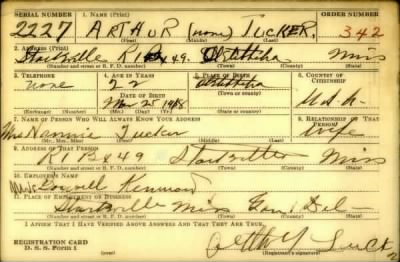 SERIAL NUMBER 1. NAME (Print) ORDER NUMBER
2227 ARTHUR (none) TUCKER. 342
(First) (Middle) (Last)
2. ADDRESS (Print)
Starkville R1 Bx 49. Oktibbeha Miss
(Number and street or R. F. D. number) (Town) (County) (State)
3. TELEPHONE 4. AGE IN YEARS 5. PLACE OF BIRTH 6. COUNTRY OF CITIZENSHIP
none 22 Oktibbeha
DATE OF BIRTH (Town or county)
Mar 25 1918 Miss U.S.A.
(Exchange) (Number) (Mo.) (Day) (Yr.) (State or country)
7. NAME OF PERSON WHO WILL ALWAYS KNOW YOUR ADDRESS 8. RELATIONSHIP OF THAT PERSON
Mrs Nannie Tucker Wife
(Mr., Mrs., Miss) (First) (Middle) (Last)
9. ADDRESS OF THAT PERSON
R1 Bx 49 Starkville Miss
(Number and street or R. F. D. number) (Town) (County) (State)
10. EMPLOYER'S NAME
11. PLACE OF EMPLOYMENT OR BUSINESS
Starkville Miss
(Number and street or R. F. D. number) (Town) (County) (State)
I AFFIRM THAT I HAVE VERIFIED ABOVE ANSWERS AND THAT THEY ARE TRUE.
REGISTRATION CARD
D. S. S. Form 1
(Registrant's signature)